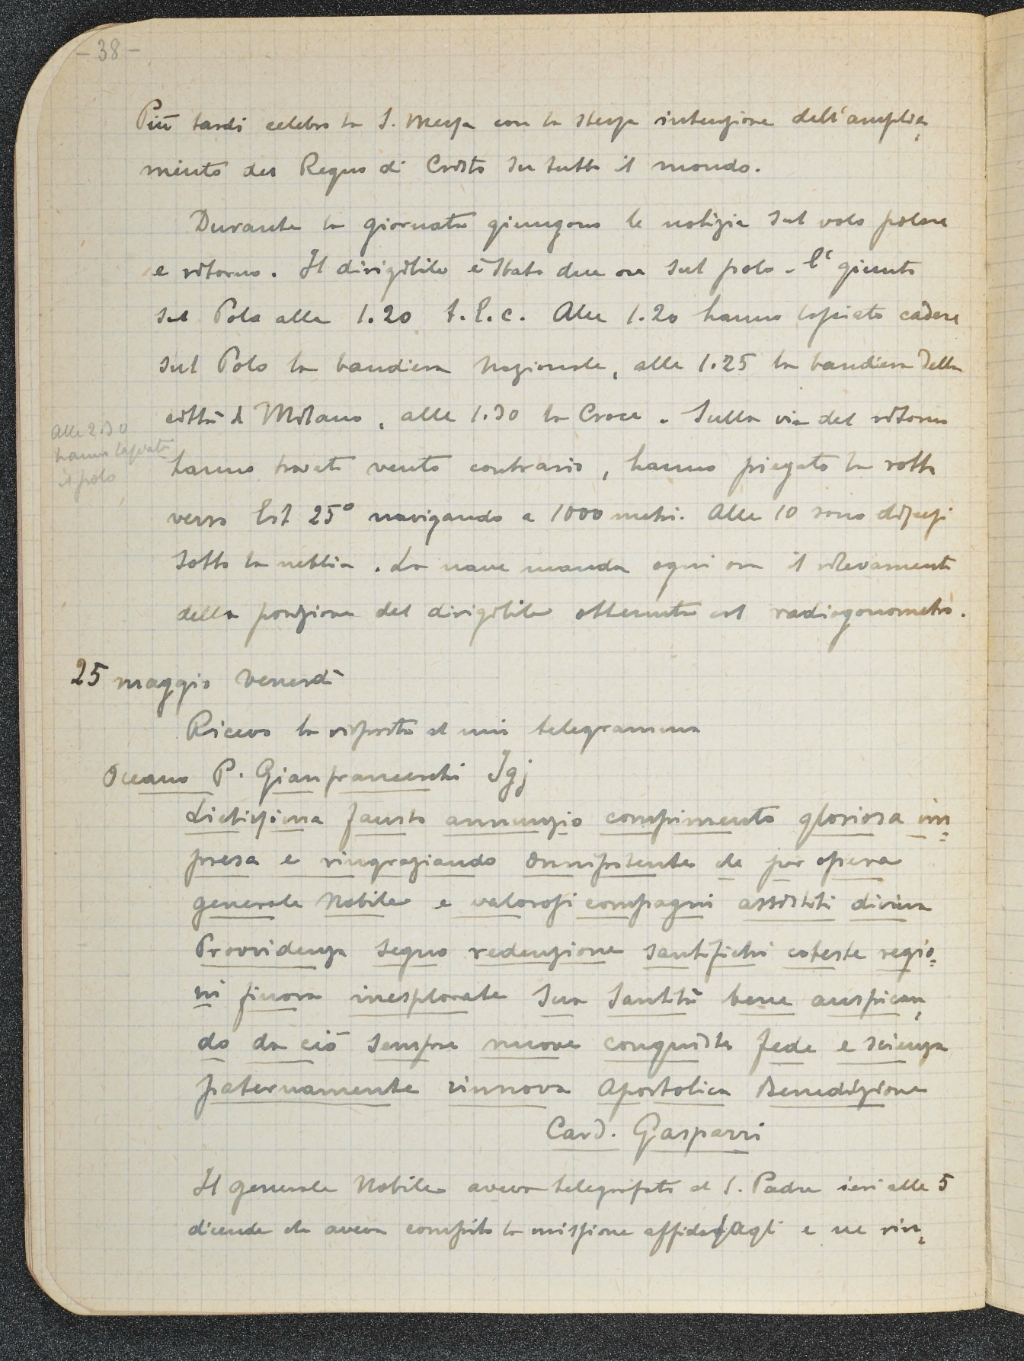 - 38 -
Più tardi celebro la S. Messa con la stessa intenzione dell'amplia,
mento del Regno di Cristo su tutto il mondo.
Durante la giornata giungono le notizie sul volo polare
e ritorno. Il dirigibile è stato due ore sul polo. È giunto
sul Polo alle 1.20 T.E.C. Alle 1.20 hanno lasciato cadere
sul Polo la bandiera nazionale, alle 1.25 la bandiera della
città di Milano, alle 1.30 la Croce. Sulla via del ritorno
Alle 2.30
hanno lasciato
il polo
hanno trovato vento contrario, hanno piegato la rotta
verso Est 25° navigando a 1000 metri. Alle 10 sono discesi
sotto la nebbia. La nave manda ogni ora il rilevamento
della posizione del dirigibile ottenuta col radiogoniometro.
25 maggio venerdì
Ricevo la risposta al mio telegramma
Oceano P. Gianfranceschi Sgj
Lietissima fausto annunzio compimento gloriosa im=
presa e ringraziando Onnipotente che per opera
generale Nobile e valorosi compagni assistiti divina
Provvidenza segno redenzione santifichi coteste regio=
ni finora inesplorate Sua Santità bene auspican,
do da ciò sempre nuove conquiste fede e scienza
paternamente rinnova Apostolica Benedizione
Card. Gasparri
Il generale Nobile aveva telegrafato al S. Padre ieri alle 5
dicendo che aveva compiuto la missione affidatagli e ne rin=